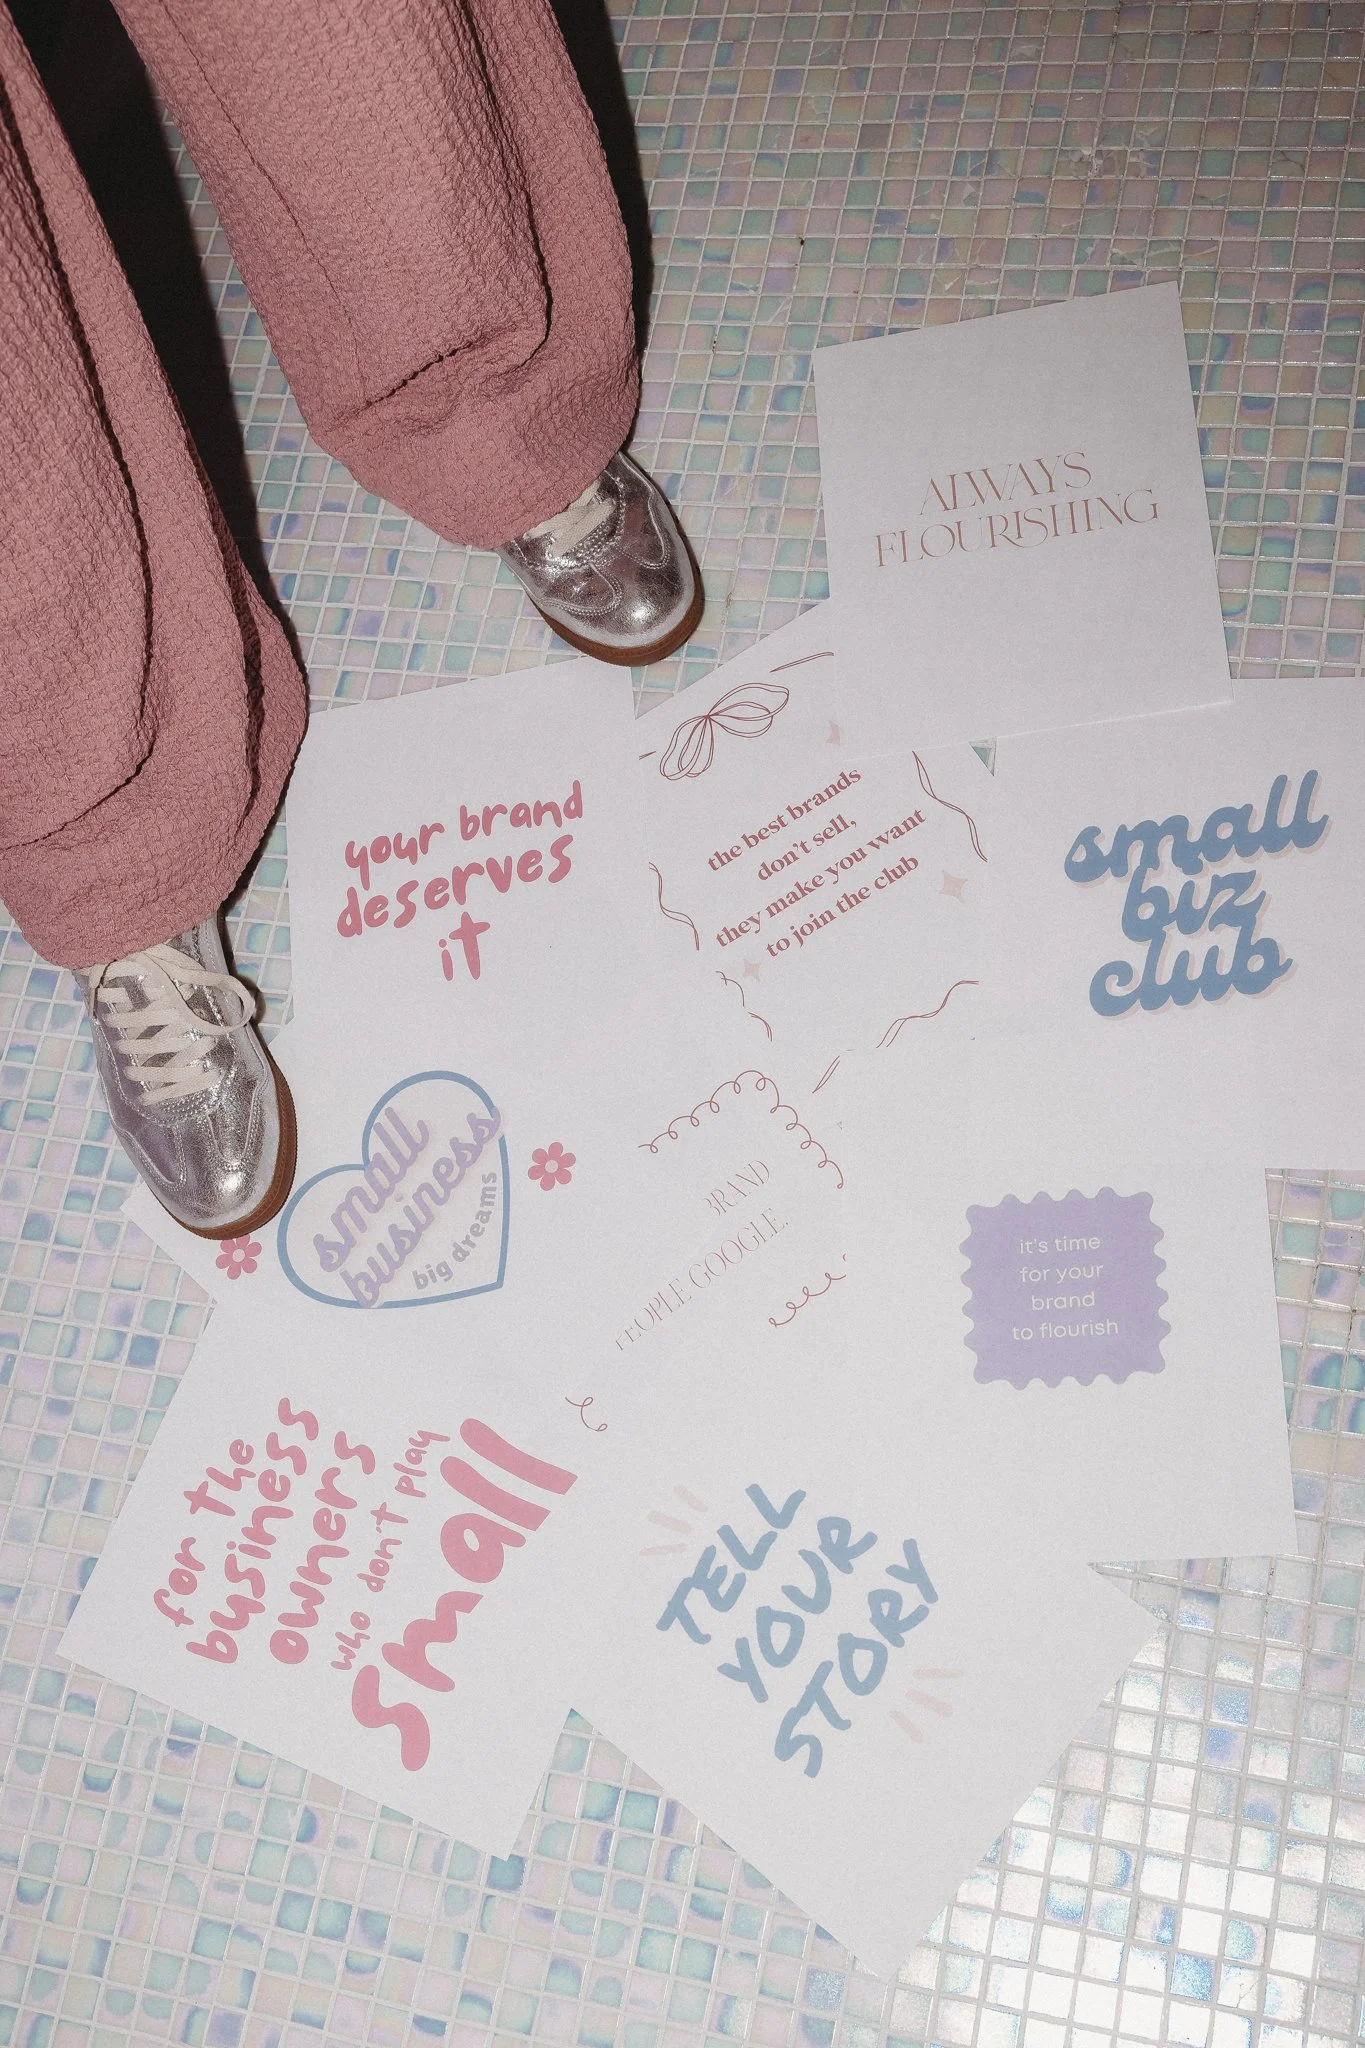 ALWAYS
FLOURISHING
your brand
deserves
it
the best brands
don't sell,
they make you want
to join the club
small
biz
club
small
business
big dreams
BRAND
PEOPLE GOOGLE.
it's time
for your
brand
to flourish
for the
business
owners
who don't play
small
TELL
YOUR
STORY